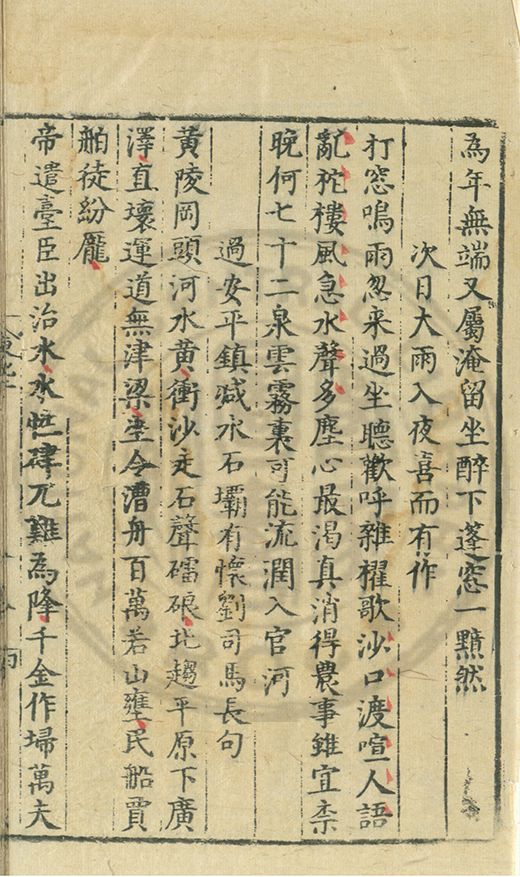 為年無端又屬淹留坐醉下蓬窓一黯然
次日大雨入夜喜而有作
打窓鳴雨忽来過坐聽歡呼雜櫂歌沙口渡喧人語
亂柁樓風急水聲多塵心最渴真消得農事雖宜柰
晚何七十二泉雲霧裏可能流潤入官河
過安平鎮減水石壩有懷劉司馬長句
黄陵岡頭河水黄衝沙走石聲礌硠北趨平原下廣
澤直壞運道無津梁坐令漕舟百萬若山壅民船賈
舶徒紛厖
帝遣臺臣出治水水怪肆兀難為降千金作埽萬夫